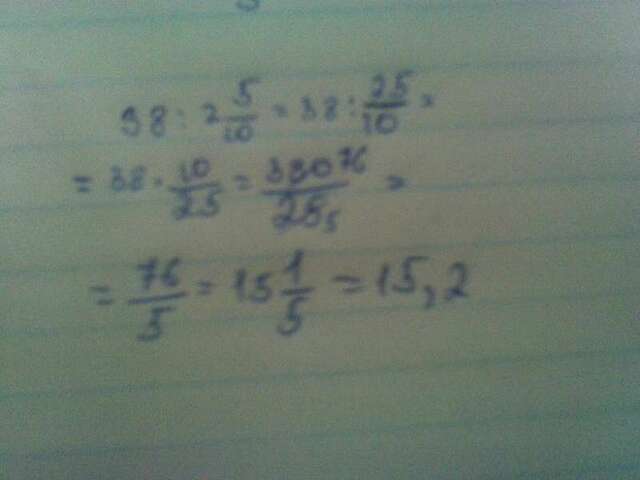 38 : 2 5/10 = 38 : 25/10 =
= 38 · 10/25 = 380 76/25 5 =
= 76/5 = 15 1/5 = 15,2